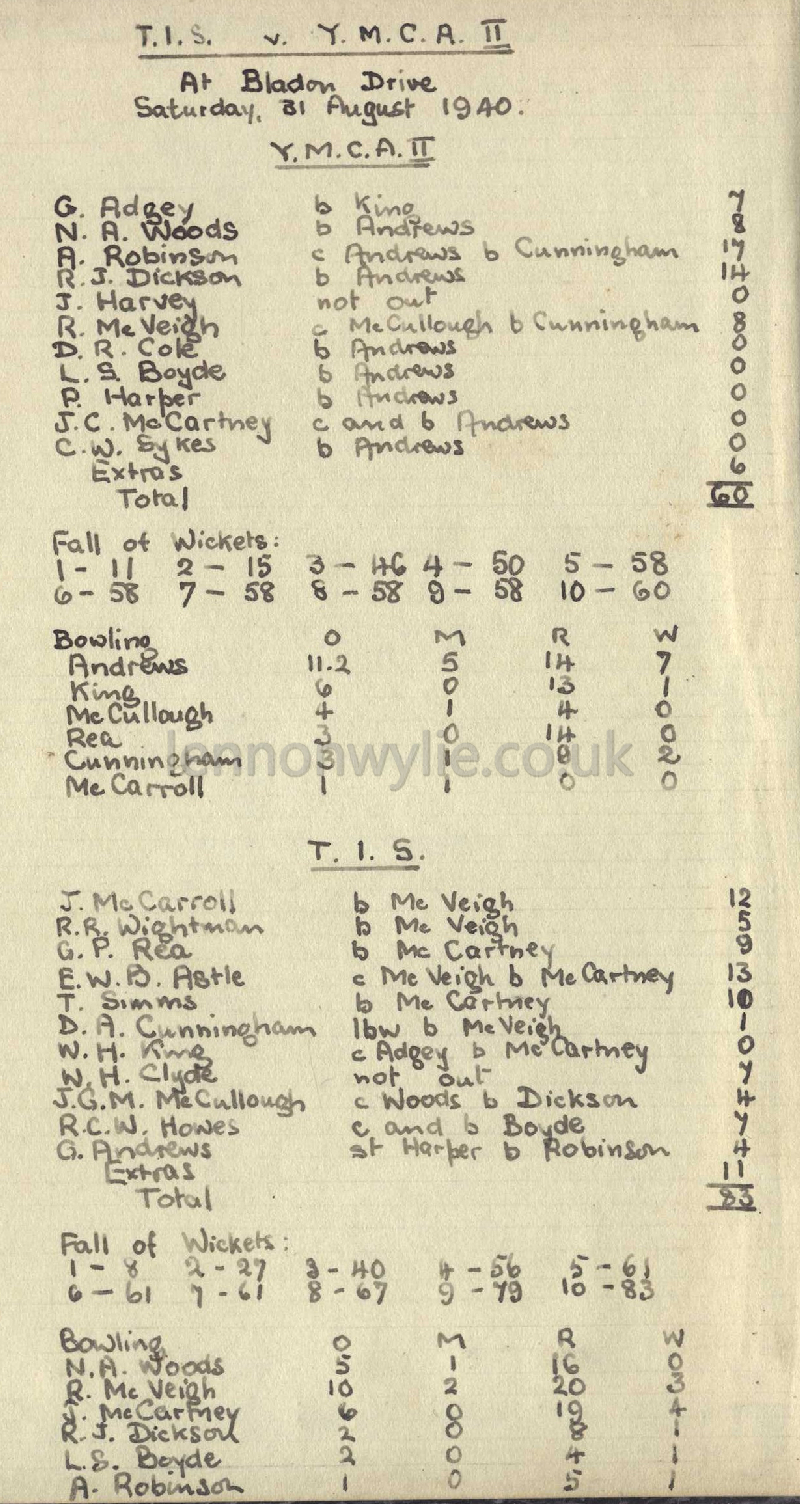 T.I.S. v. Y.M.C.A. II
At Bladon Drive
Saturday, 31 August 1940.
Y.M.C.A. II
G. Adgey b King 7
N. A. Woods b Andrews 8
A. Robinson c Andrews b Cunningham 17
R. J. Dickson b Andrews 14
J. Harvey not out 0
R. McVeigh c McCullough b Cunningham 8
D. R. Cole b Andrews 0
L. S. Boyde b Andrews 0
P. Harper b Andrews 0
J.C. McCartney c and b Andrews 0
C.W. Sykes b Andrews 0
Extras 6
Total 60
Fall of Wickets:
1 - 11 2 - 15 3 - 46 4 - 50 5 - 58
6 - 58 7 - 58 8 - 58 9 - 58 10 - 60
Bowling O M R W
Andrews 11.2 5 14 7
King 6 0 13 1
McCullough 4 1 4 0
Rea 3 0 14 0
lennonwylie.co.uk
Cunningham 3 1 9 2
McCarroll 1 1 0 0
T. I. S.
J. McCarroll b McVeigh 12
R.R. Wightman b McVeigh 5
G. P. Rea b McCartney 9
E.W.B. Astle c McVeigh b McCartney 13
T. Simms b McCartney 10
D. A. Cunningham lbw b McVeigh 1
W. H. King c Adgey b McCartney 0
W. H. Clyde not out 7
J.G.M. McCullough c Woods b Dickson 4
R.C.W. Howes c and b Boyde 7
G. Andrews st Harper b Robinson 4
Extras 11
Total 83
Fall of Wickets:
1 - 8 2 - 27 3 - 40 4 - 56 5 - 61
6 - 61 7 - 61 8 - 67 9 - 79 10 - 83
Bowling O M R W
N.A. Woods 5 1 16 0
R. McVeigh 10 2 20 3
J. McCartney 6 0 19 4
R. J. Dickson 2 0 8 1
L.S. Boyde 2 0 4 1
A. Robinson 1 0 5 1